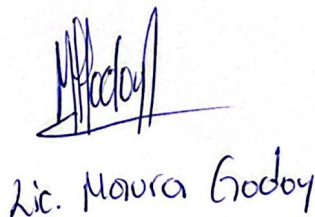 MGodoy
Lic. Maura Godoy